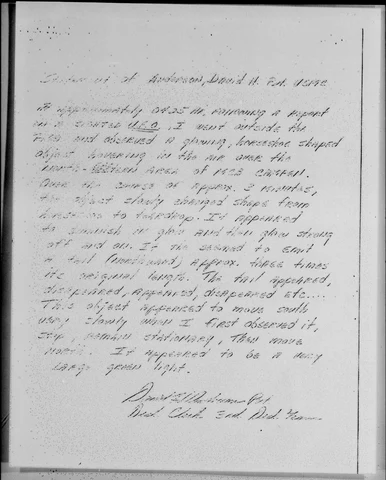 Statement of Anderson, David H. Pvt. USMC
At approximately 0425 M, following a report
of a sighted U.F.O., I went outside the
and observed a glowing, horseshoe shaped
object hovering in the air over the
north-western area of
Over the course of approx. 3 minutes,
the object slowly changed shape from
horseshoe to teardrop. It appeared
to diminish in glow and then glow strong
off and on. It the seemed to emit
a tail (northward) approx. three times
its original length. The tail appeared,
disappeared, appeared, disapeared etc....
This object appeared to move south
very slowly when I first observed it,
stop, remain stationary, then move
north. It appeared to be a very
large green light.
David H Anderson Pvt.
Clerk 2nd